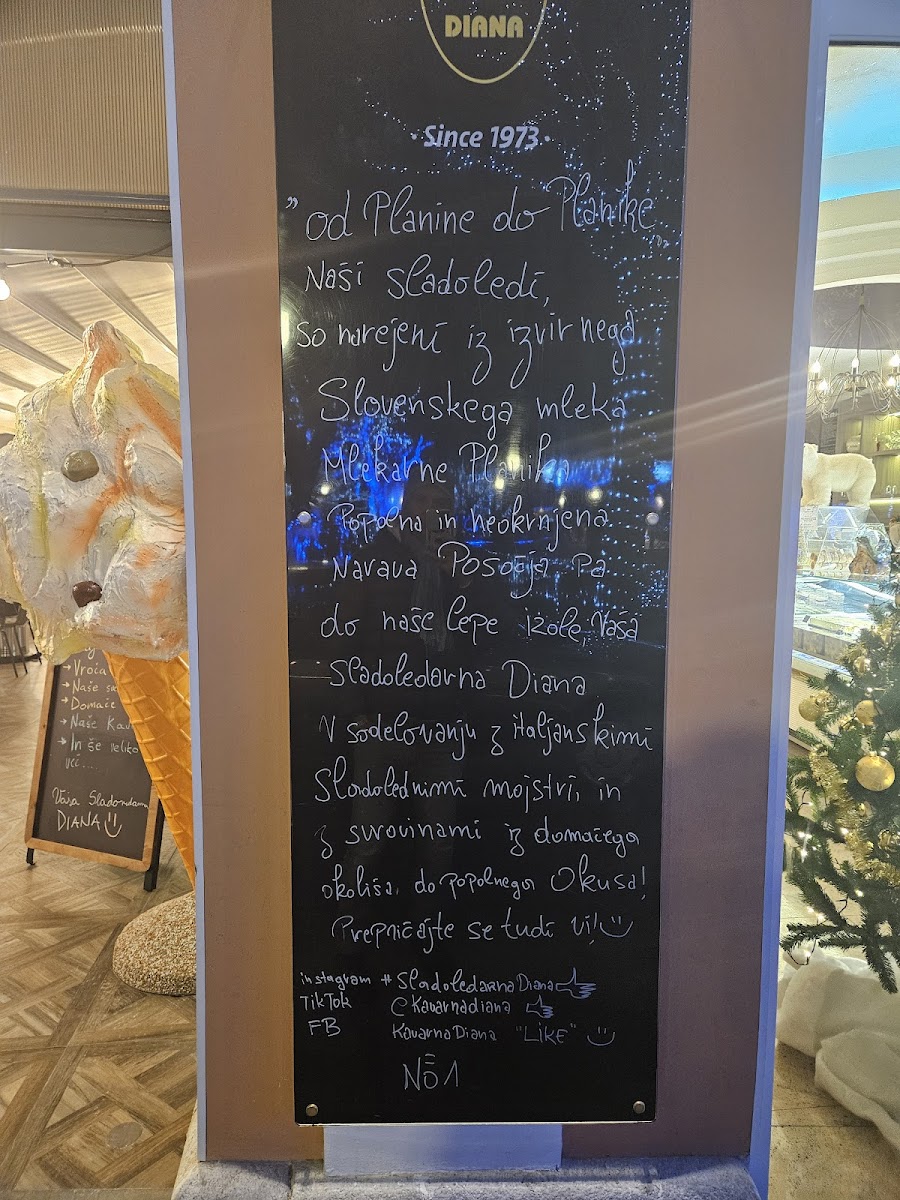 DIANA
• Since 1973 •
"od Planine do Planike
Naši sladoledi,
so narejeni iz izvirnega
Slovenskega mleka
Mlekarne Planika
Popolna in neokrnjena
Narava Posočja pa
do naše lepe izole, Vaša
Sladoledarna Diana
V sodelovanju z italjanskimi
Sladolednimi mojstri, in
z surovinami iz domačega
okoliša, do popolnega Okusa!
Prepričajte se tudi Vi!
instagram # Sladoledarna Diana
TikTok @Kavarnadiana
FB Kavarna Diana "LIKE"
No 1
→ Vroča
→ Naše
→ Domače
→ Naše
→ In še veliko
več....
Vaša Sladoledarna
DIANA